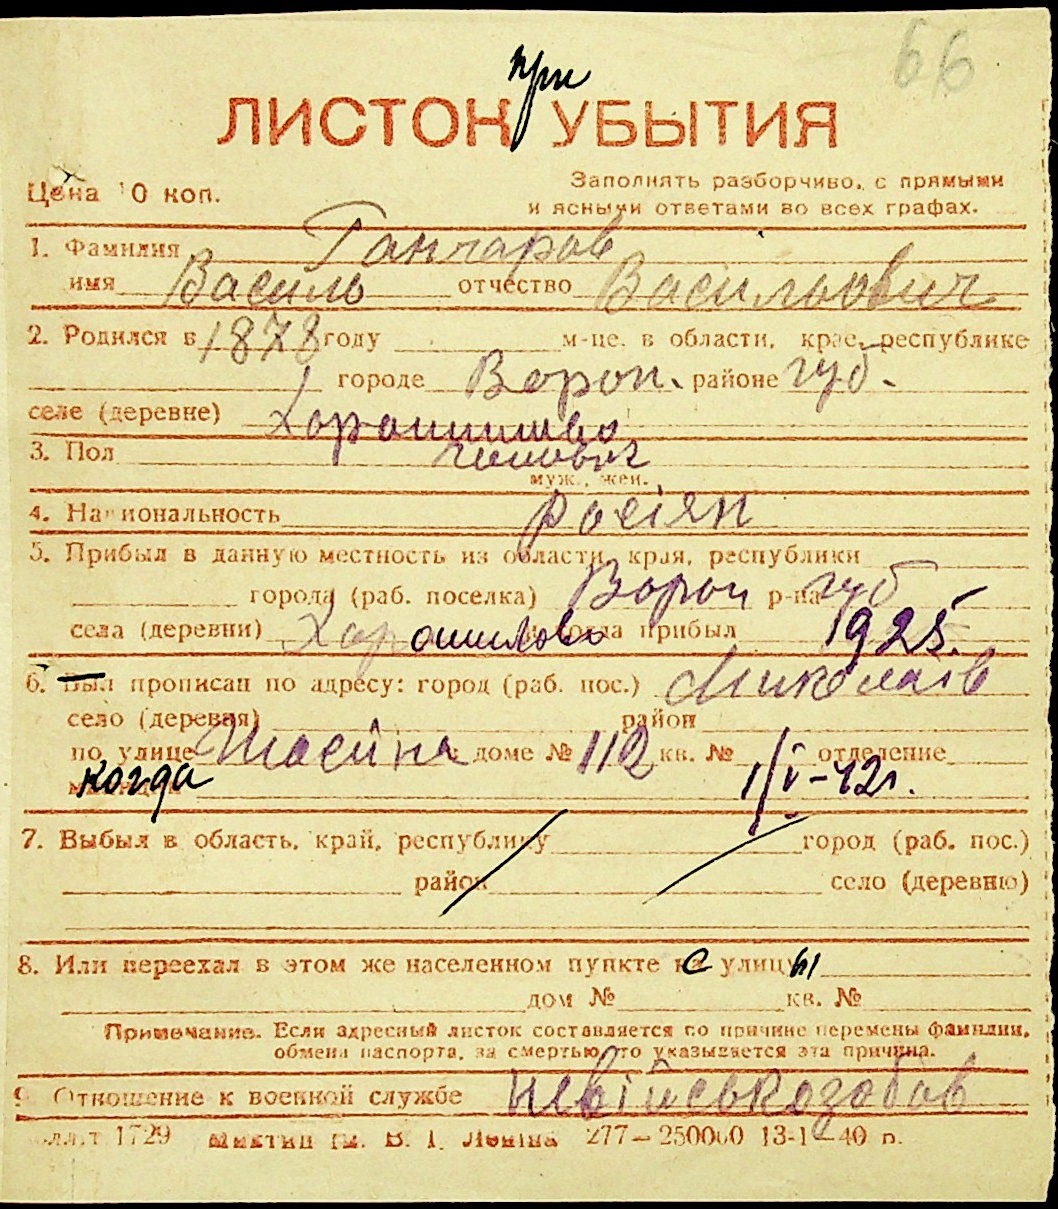 66
при
ЛИСТОК УБЫТИЯ
Цена 10 коп.
Заполнять разборчиво, с прямыми
и ясными ответами во всех графах.
1. Фамилия Ганчаров
имя Василь отчество Васильович
2. Родился в 1878 году м-це, в области, крае, республике
городе Ворон. районе губ.
селе (деревне)
3. Пол
муж., жен.
4. Национальность росіян
5. Прибыл в данную местность из области, края, республики
города (раб. поселка) Ворон р-на губ
села (деревни) и когда прибыл 1925.
6. Был прописан по адресу: город (раб. пос.) Миколаів
село (деревня) район
по улице доме № 112 кв. № отделение
когда 1/V-42г.
7. Выбыл в область, край, республику город (раб. пос.)
район село (деревню)
8. Или переехал в этом же населенном пункте с улицы
дом № кв. №
Примечание. Если адресный листок составляется по причине перемены фамилии,
обмена паспорта, за смертью, то указывается эта причина.
9. Отношение к военной службе невійськозобов
1729 им. В. І. Леніна 277—250000 13-1—40 р.